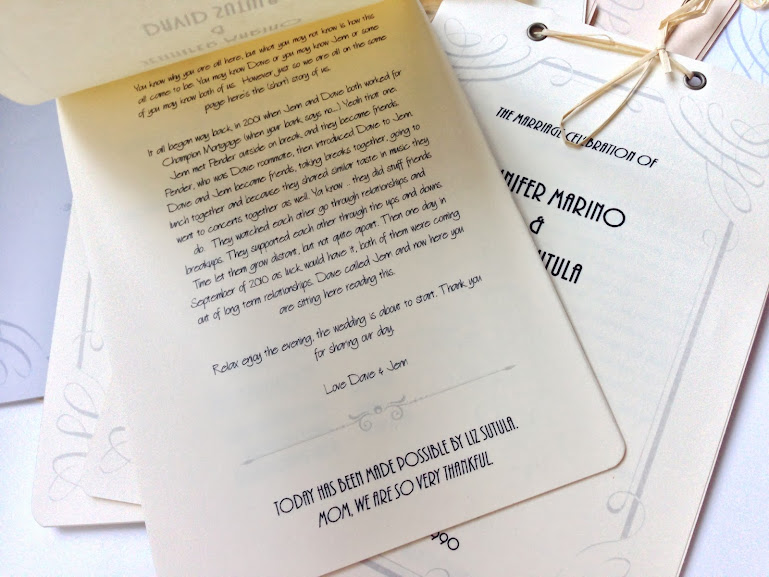 DAVID SUTULA
&
JENNIFER MARINO
You know why you are all here, but what you may not know is how this
all come to be. You may know Dave or you may know Jenn or some
of you may know both of us. However just so we are all on the same
page here's the (short) story of us.
It all began way back, in 2001 when Jenn and Dave both worked for
Champion Mortgage (when your bank says no...) Yeah that one.
Jenn met Fender outside on break, and they became friends.
Fender, who was Dave roommate, then introduced Dave to Jenn.
Dave and Jenn became friends, taking breaks together, going to
lunch together and because they shared similar taste in music they
went to concerts together as well. Ya know... they did stuff friends
do. They watched each other go through relationships and
breakups. They supported each other through the ups and downs.
Time let them grow distant, but not quite apart. Then one day in
September of 2010 as luck would have it, both of them were coming
out of long term relationships. Dave called Jenn and now here you
are sitting here reading this.
Relax enjoy the evening, the wedding is about to start. Thank you
for sharing our day.
Love Dave & Jenn
TODAY HAS BEEN MADE POSSIBLE BY LIZ SUTULA.
MOM, WE ARE SO VERY THANKFUL.
THE MARRIAGE CELEBRATION OF
NIFER MARINO
&
SUTULA